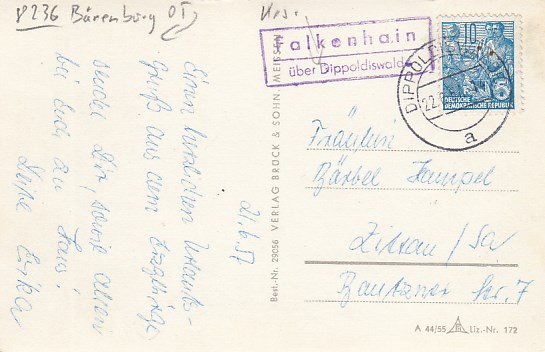 8236 Bärenburg OT
Krs.
Falkenhain
über Dippoldiswalde
10
DEUTSCHE
DEMOKRATISCHE REPUBLIK
DIPPOLDISWALDE
22.
a
Einen herzlichen Urlaubs-
gruß aus dem Erzgebirge
sendet Dir, sowie allen
bei Euch zu Haus!
Liebe Erika
21.6.57
Best.-Nr. 29056 VERLAG BRÜCK & SOHN, MEISSEN
Fräulein
Bärbel Hampel
Zittau/Sa
Bautzner Str. 7
A 44/55 Liz.-Nr. 172